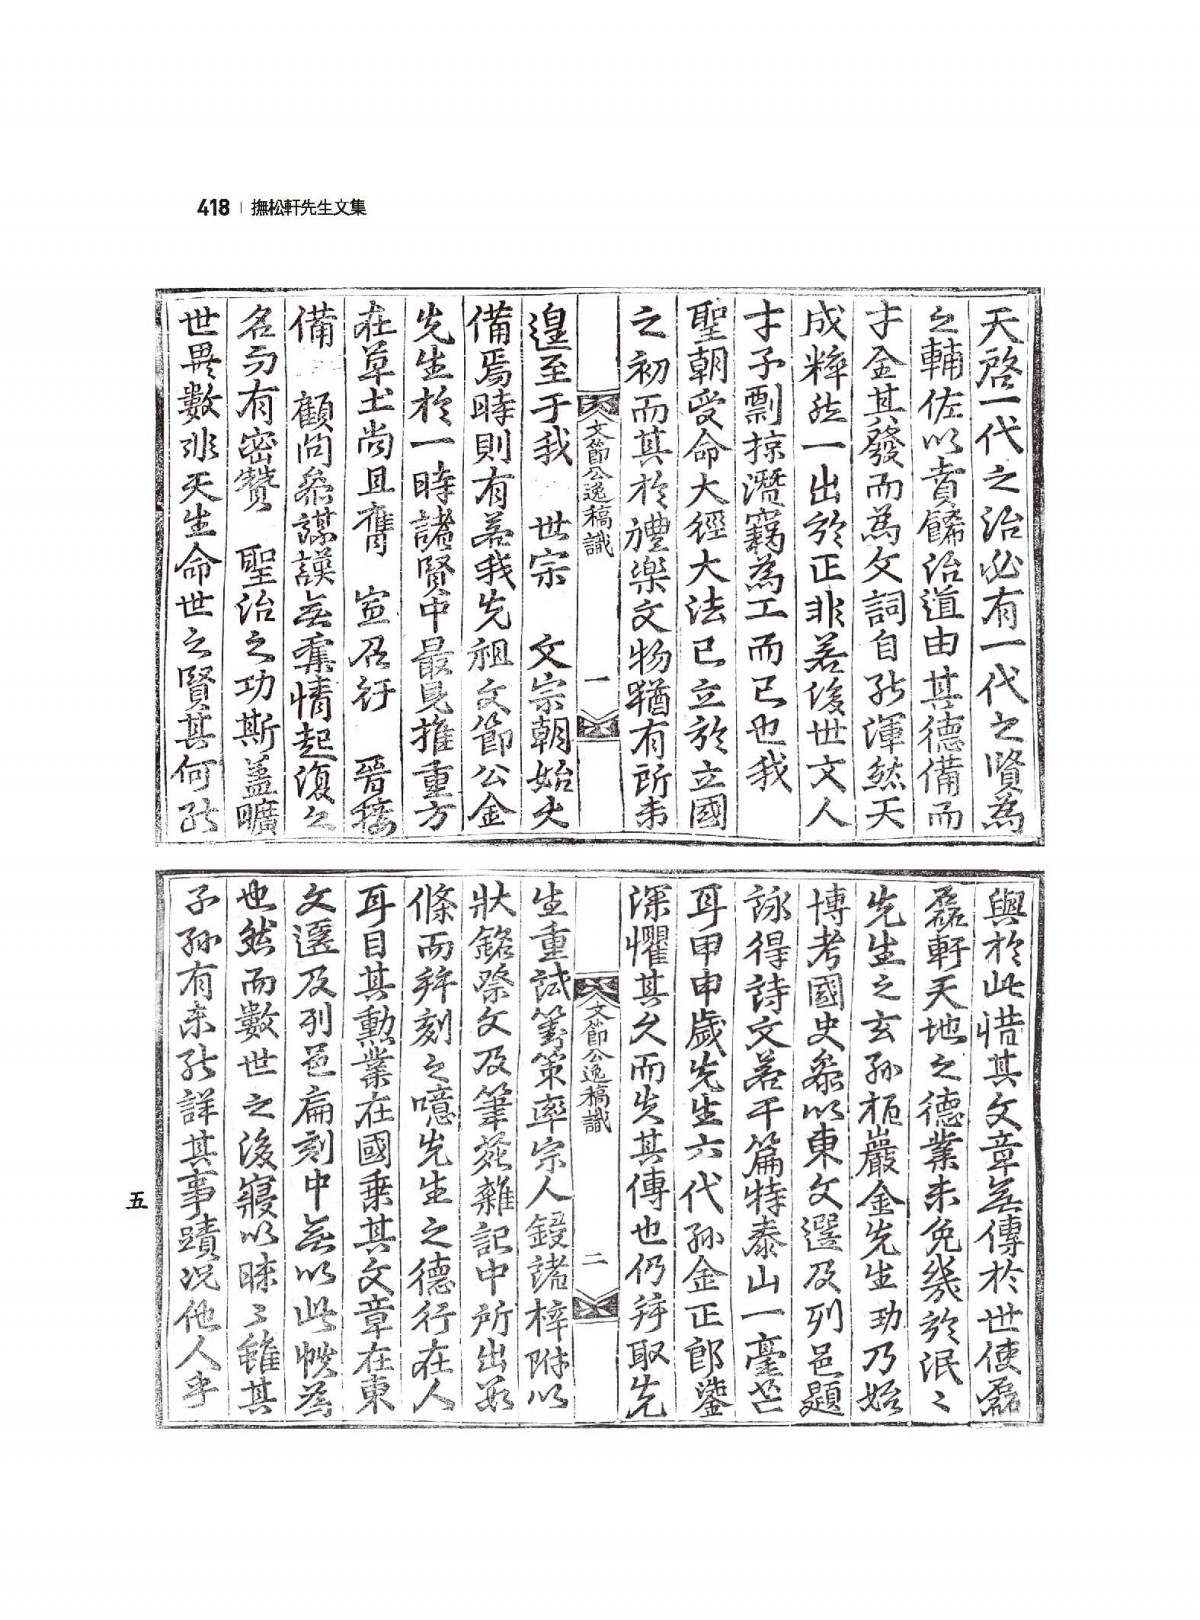 418 | 撫松軒先生文集
天啓一代之治必有一代之賢為
之輔佐以賁餙治道由其德備而
才全其發而為文詞自能渾然天
成粹然一出於正非若後世文人
才子剽掠潛竊為工而已也我
聖朝受命大經大法已立於立國
之初而其於禮樂文物猶有所未
文節公逸稿識
一
遑至于我 世宗 文宗朝始大
備焉時則有若我先祖文節公金
先生於一時諸賢中最見推重方
在草土尚且膺 宣召行 晉接
備 顧問叅謀謨無奪情起復之
名而有密贊 聖治之功斯盖曠
世異數非天生命世之賢其何能
與於此惜其文章無傳於世使磊
磊軒天地之德業未免幾於泯〻
先生之玄孫柅巖金先生玏乃始
博考國史叅以東文選及列邑題
詠得詩文若干篇特泰山一毫芒
耳甲申歲先生六代孫金正郎鎏
深懼其久而失其傳也仍幷取先
文節公逸稿識
二
生重試對策率宗人鋟諸梓附以
狀銘祭文及筆苑雜記中所出數
條而幷刻之噫先生之德行在人
耳目其勳業在國乗其文章在東
文選及列邑扁刻中無以此恨為
也然而數世之後寢以昧〻雖其
子孫有未能詳其事蹟况他人乎
五